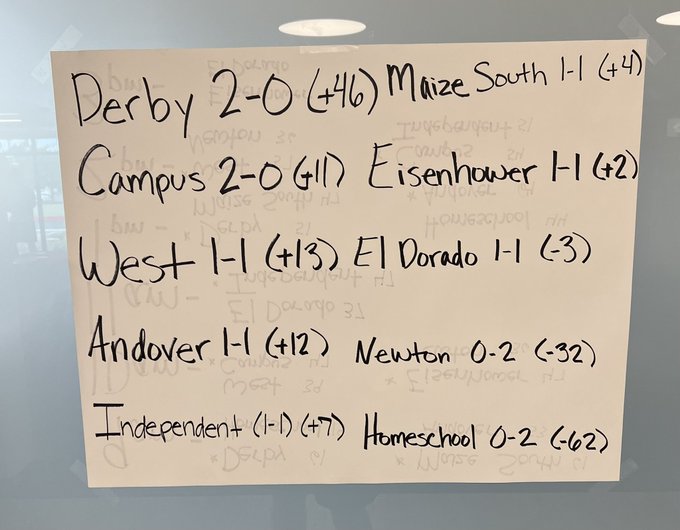 Derby 2-0 (+46)
Campus 2-0 (+11)
West 1-1 (+13)
Andover 1-1 (+12)
Independent (1-1) (+7)
Maize South 1-1 (+4)
Eisenhower 1-1 (+2)
El Dorado 1-1 (-3)
Newton 0-2 (-32)
Homeschool 0-2 (-62)